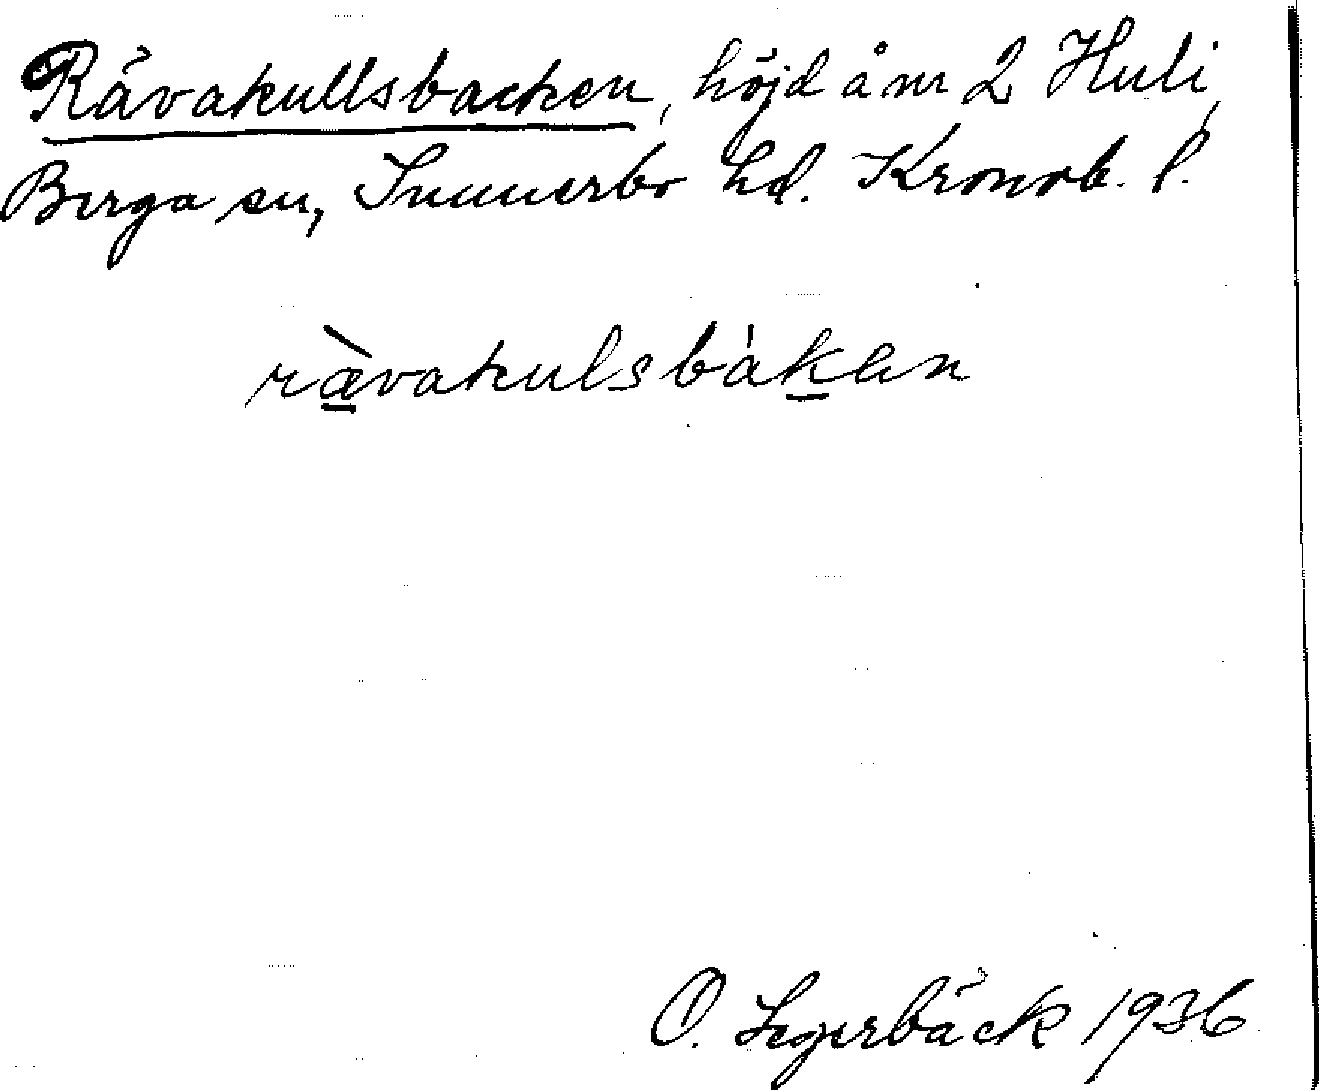 Rävakullsbacken, höjd å nr 2 Huli,
Berga sn, Sunnerbo hd. Kronob. l.
rævakulsbákan
O. Segerbäck 1936